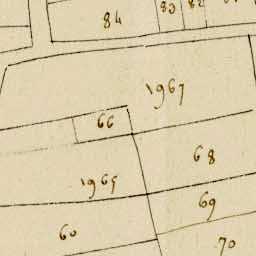 84
83
82
1967
66
68
1965
69
60
70